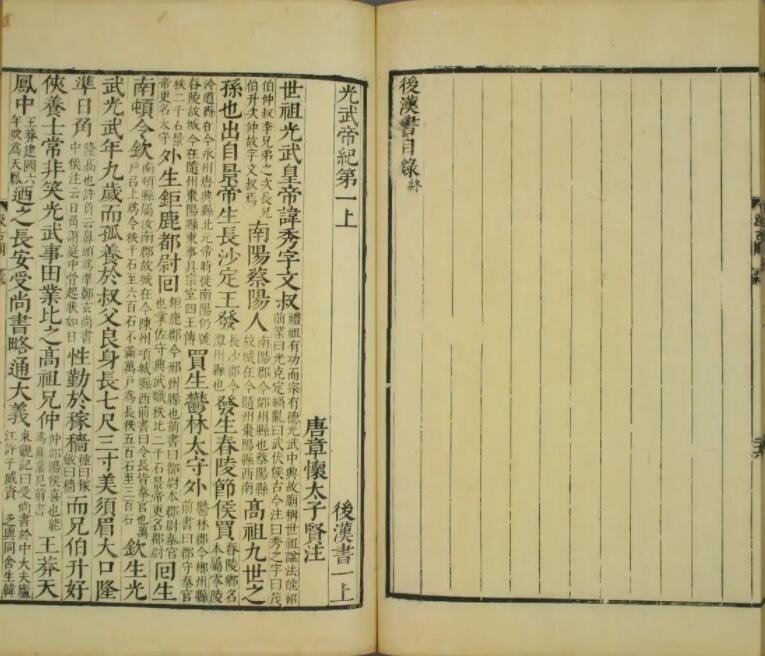 後漢書目錄終
光武帝紀第一上 後漢書一上
唐章懷太子賢注
世祖光武皇帝諱秀字文叔禮祖有功而宗有德光武中興故廟稱世祖謚法能紹前業曰光克定禍亂曰武伏侯古今注曰秀之字曰茂
伯仲叔季兄弟之次長兄伯升次仲故字文叔焉南陽蔡陽人南陽郡今鄧州縣也蔡陽縣故城在今隨州棗陽縣西南高祖九世之
孫也出自景帝生長沙定王發長沙郡今潭州縣也發生舂陵節侯買舂陵鄉名本屬零陵
泠道縣在今永州唐興縣北元帝時徙南陽仍號舂陵故城今在隨州棗陽縣東事具宗室四王傳買生鬱林太守外鬱林郡今郴州縣前書曰郡守秦官
秩二千石景帝更名太守外生鉅鹿都尉回鉅鹿郡今邢州縣也前書曰都尉本郡尉秦官也掌佐守典武職秩比二千石景帝更名都尉回生
南頓令欽南頓縣屬汝南郡故城在今陳州項城縣西前書曰令長皆秦官也萬戶已上為令秩千石至六百石不滿萬戶為長秩五百石至三百石欽生光
武光武年九歲而孤養於叔父良身長七尺三寸美須眉大口隆
準日角隆高也許負云鼻頭為準鄭玄尚書中候注云日角謂庭中骨起狀如日性勤於稼穡種曰稼斂曰穡而兄伯升好
俠養士常非笑光武事田業比之高祖兄仲仲郃陽侯喜也能為產業見前書王莽天
鳳中王莽建國六年改為天鳳迺之長安受尚書略通大義東觀記曰受尚書於中大夫廬江許子威資乏與同舍生韓